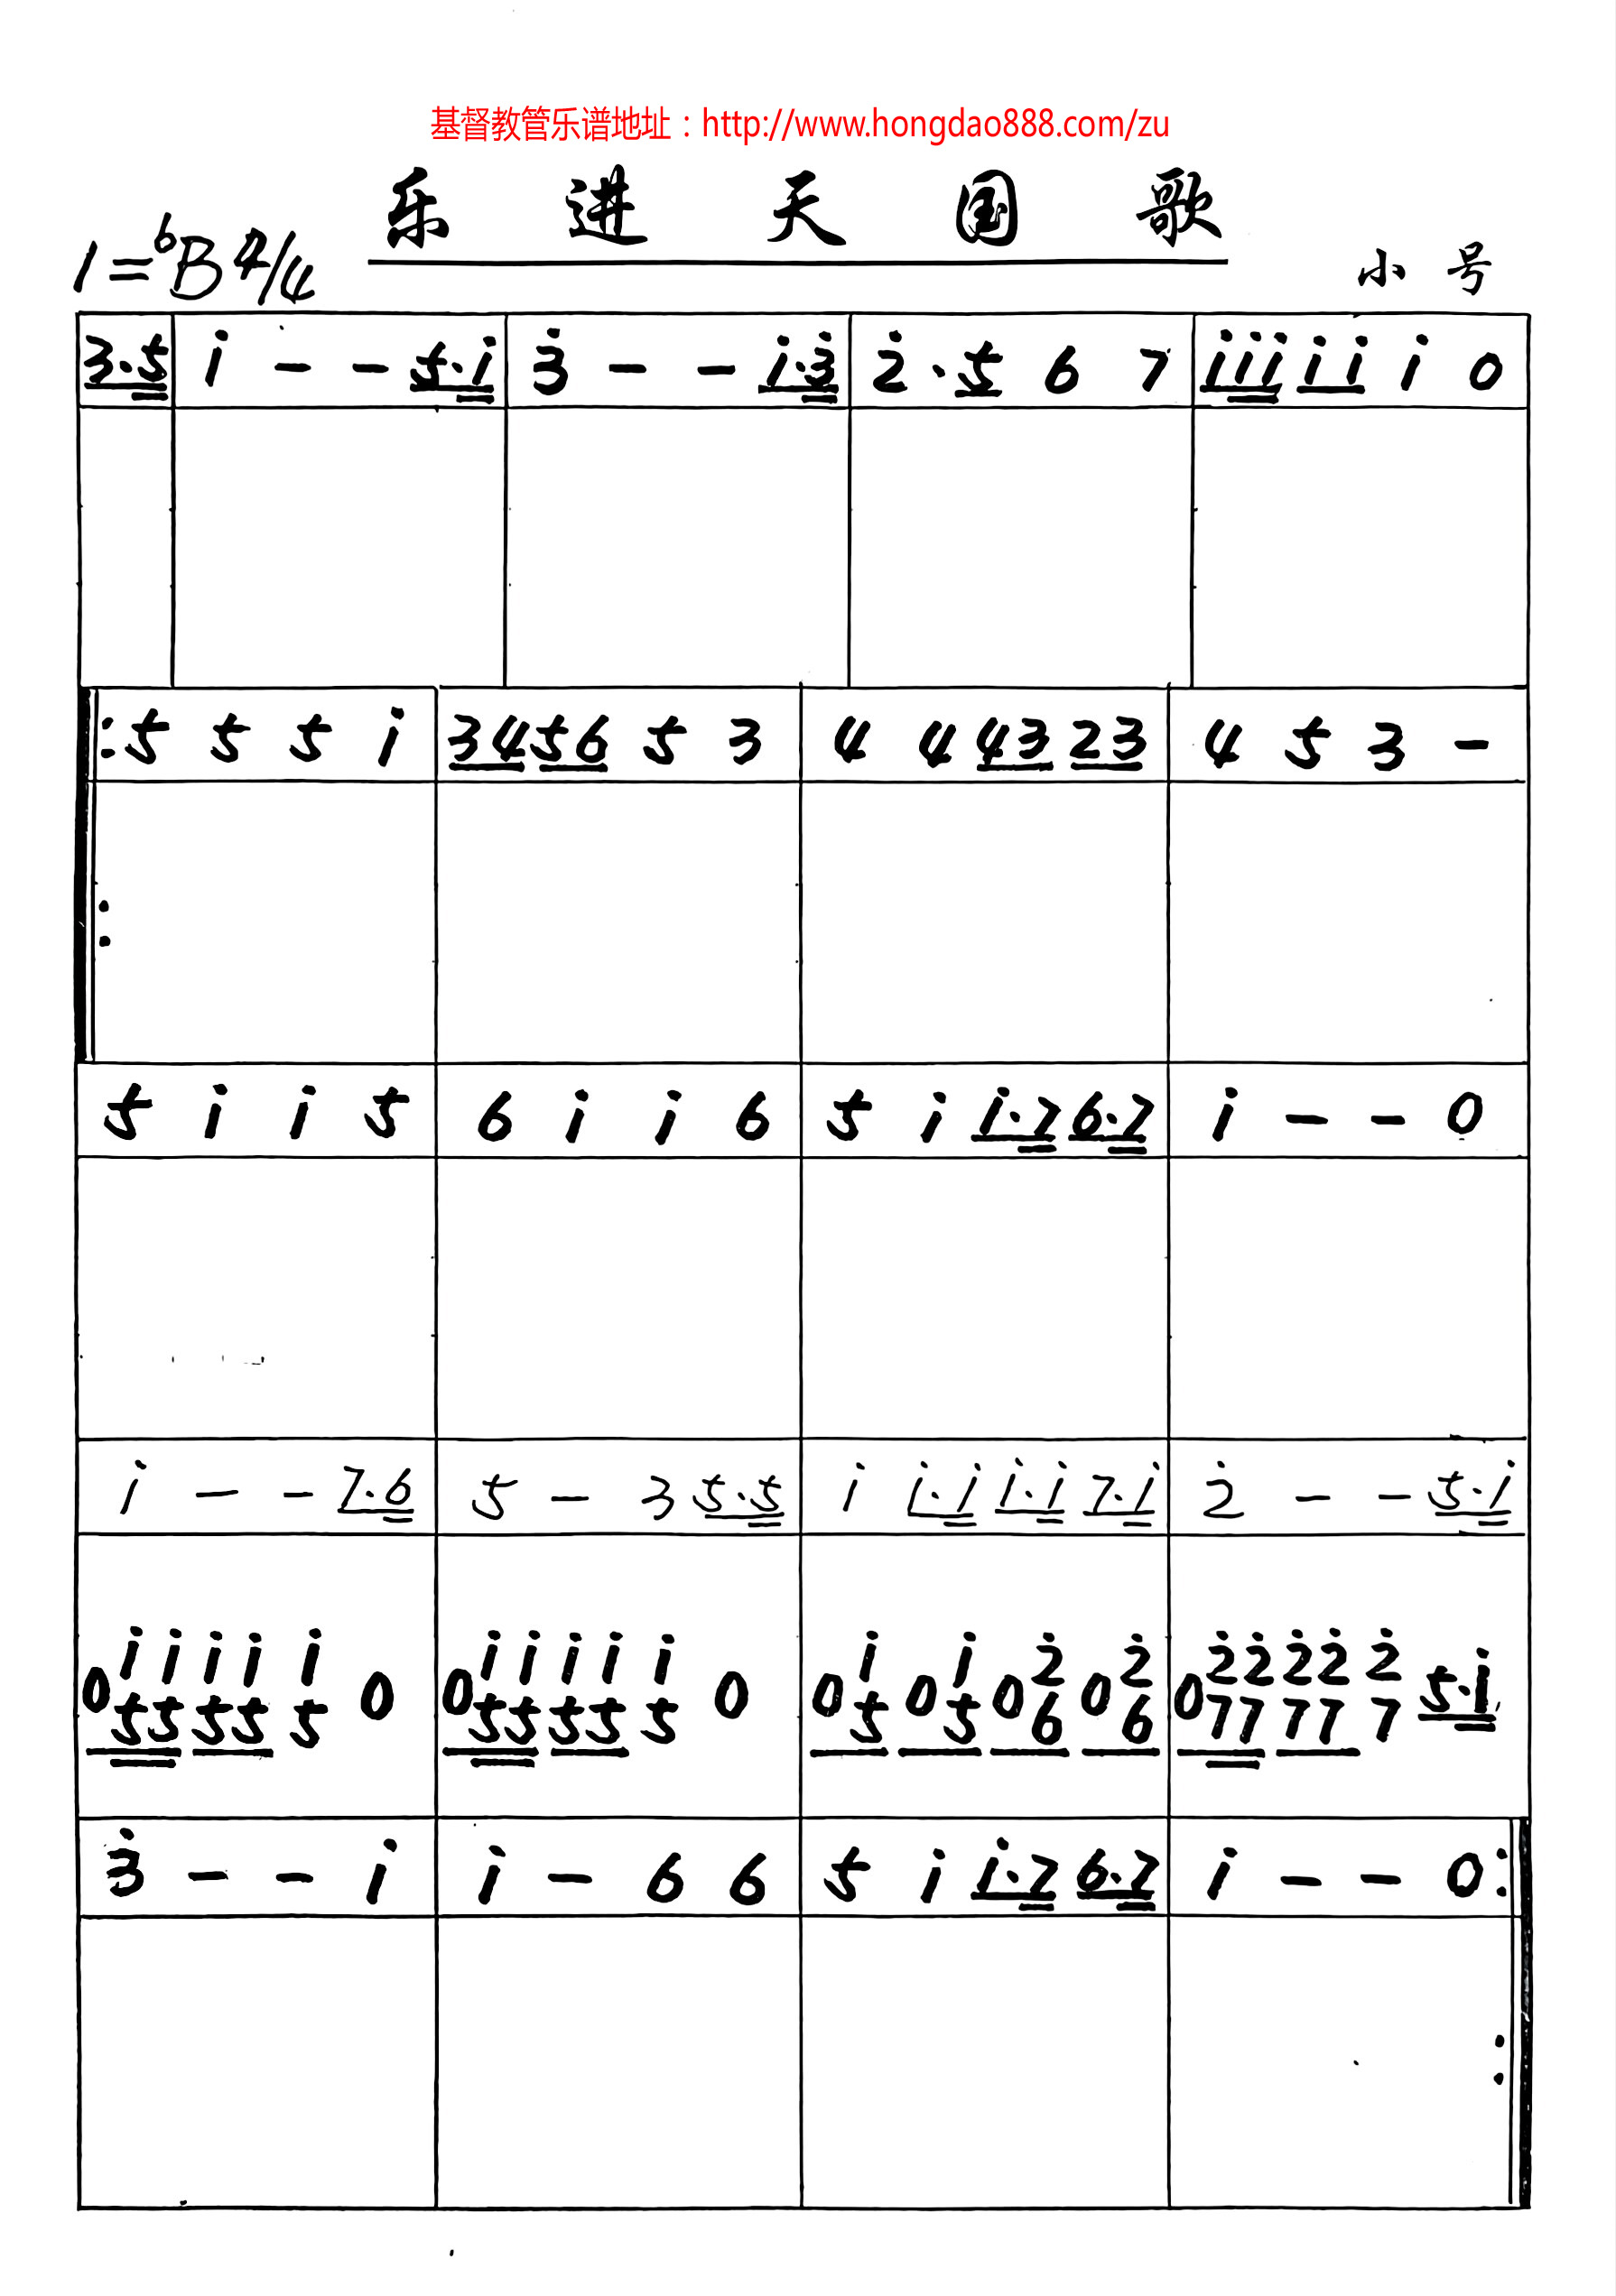 基督教管乐谱地址：http://www.hongdao888.com/zu
乐进天国歌
1=bB 4/4
小号
3·5 i - - 5·i 3̇ - - i·3̇ 2̇·5 6 7 iii ii i 0
:5 5 5 i 34 56 5 3 4 4 43 23 4 5 3 -
:
5 i i 5 6 i i 6 5 i i·7 6·7 i - - 0
i - - 7·6 5 - 3 5·5 i i·i i·i 7·i 2̇ - - 5·i
i i i i i i i i i i i i 2̇ 2̇ 2̇2̇ 2̇2̇ 2̇
0 0 0 0 0 0 0 0 0 5·i
55 55 5 55 55 5 5 5 6 6 77 77 7
3̇ - - i i - 6 6 5 i i·7 6·7 i - - 0:
: